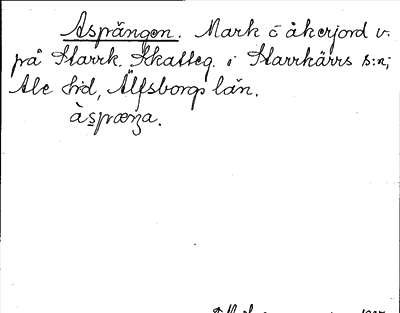 Aspången. Mark o åkerjord v.
på Starrk. Skatteg. i Starrkärrs s:n;
Ale hd, Älfsborgs län.